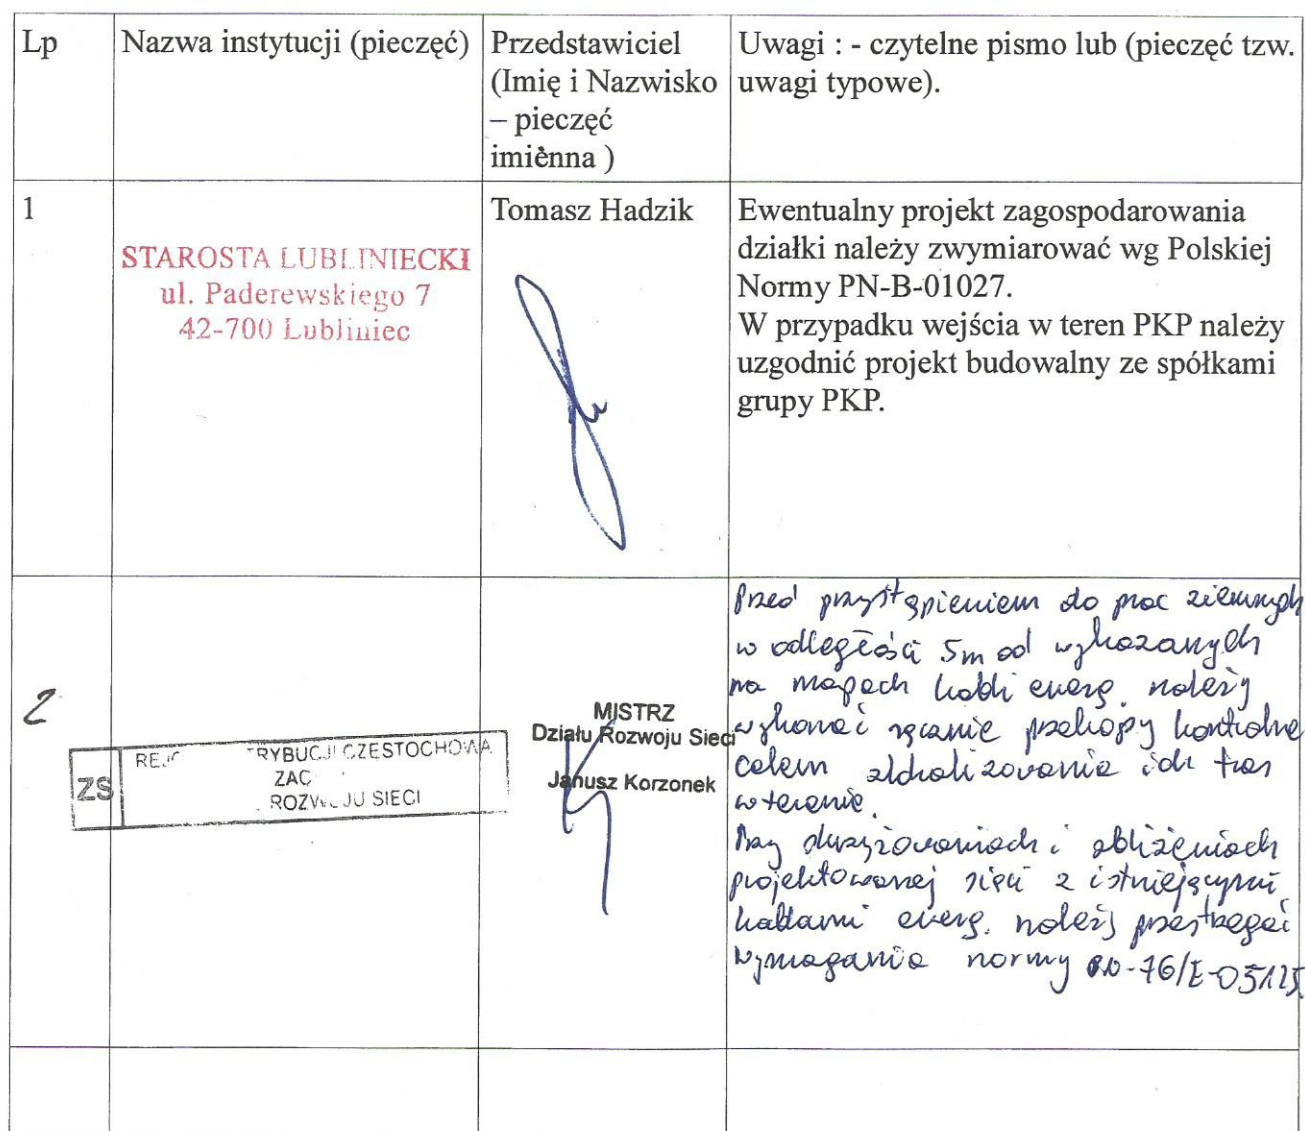 Lp
Nazwa instytucji (pieczęć)
Przedstawiciel
(Imię i Nazwisko
– pieczęć
imiènna )
Uwagi : - czytelne pismo lub (pieczęć tzw.
uwagi typowe).
1
STAROSTA LUBLINIECKI
ul. Paderewskiego 7
42-700 Lubliniec
Tomasz Hadzik
Ewentualny projekt zagospodarowania
działki należy zwymiarować wg Polskiej
Normy PN-B-01027.
W przypadku wejścia w teren PKP należy
uzgodnić projekt budowalny ze spółkami
grupy PKP.
2
ZS
TRYBUCJI CZĘSTOCHOWA
ROZWOJU SIECI
MISTRZ
Działu Rozwoju Sieci
Janusz Korzonek
Przed przystąpieniem do prac ziemnych
w odległości 5m od wykazanych
na mapach kabli energ. należy
wykonać ręcznie przekopy kontrolne
celem zlokalizowania ich tras
w terenie.
Przy skrzyżowaniach i zbliżeniach
projektowanej sieci z istniejącymi
kablami energ. należy przestrzegać
wymagania normy PN-76/E-05125.